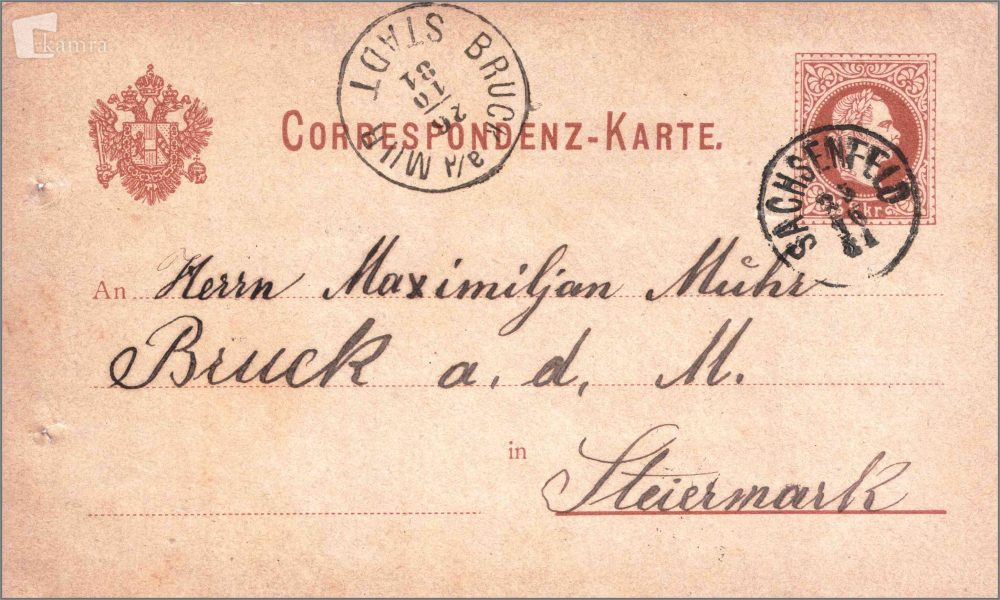 kamra
BRUCK a/d MUR STADT
26
10
81
CORRESPONDENZ-KARTE.
kr.
SACHSENFELD
10
81
An Herrn Maximiljan Muhr
Bruck a. d. M.
in
Steiermark